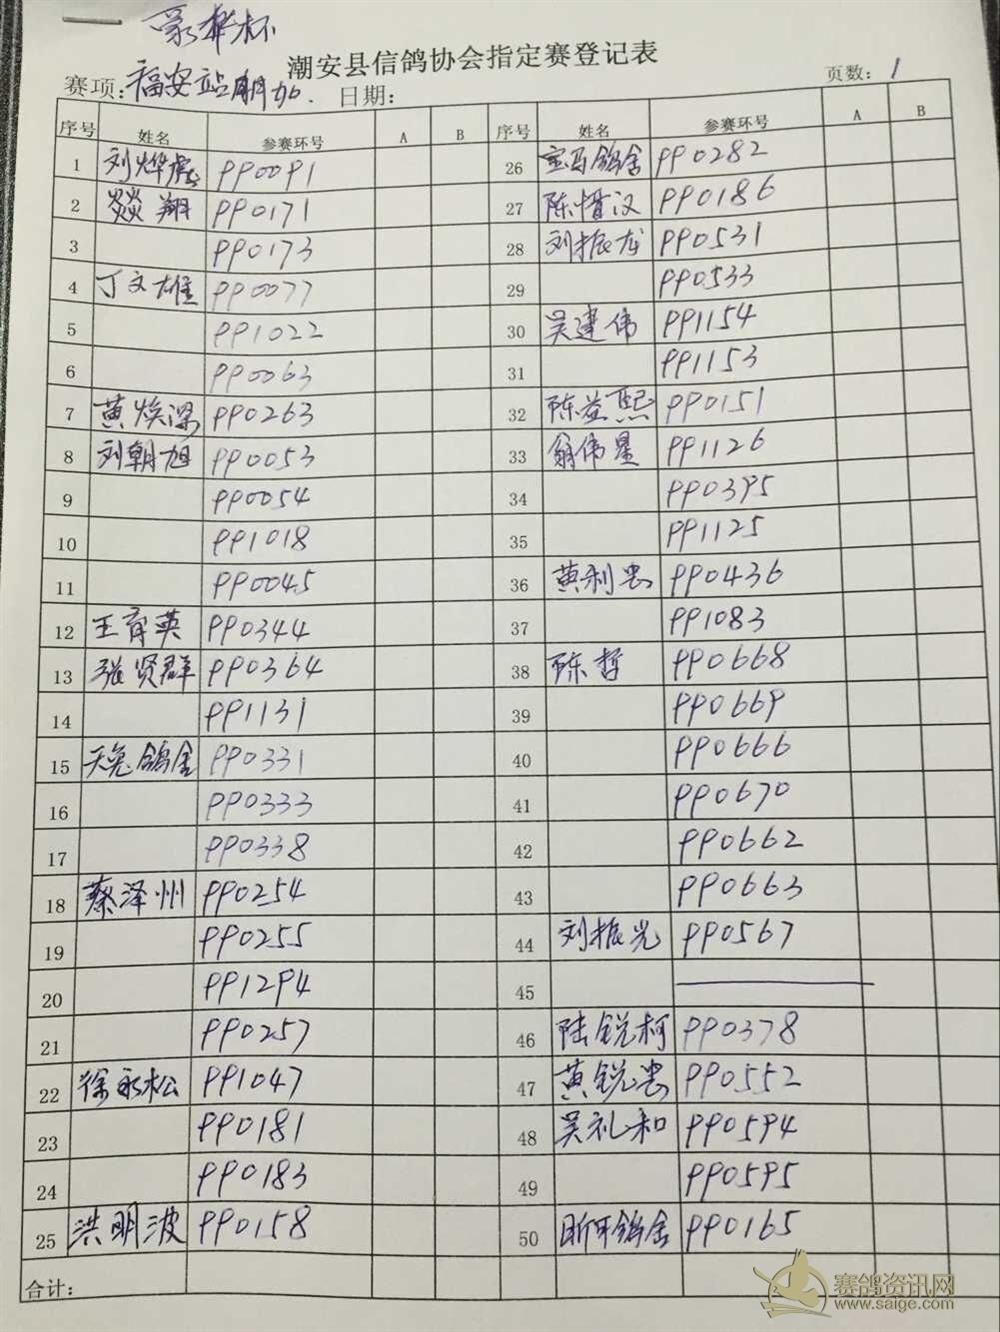 杯
潮安县信鸽协会指定赛登记表
赛项：福安站 日期： 页数：1
序号 姓名 参赛环号 A B 序号 姓名 参赛环号 A B
1 刘烨彪 PP0091 26 宝马鸽舍 PP0282
2 燚翔 PP0171 27 陈惜汉 PP0186
3 PP0173 28 刘振龙 PP0531
4 丁文雄 PP0077 29 PP0533
5 PP1022 30 吴建伟 PP1154
6 PP0063 31 PP1153
7 黄焕深 PP0263 32 陈益熙 PP0151
8 刘朝旭 PP0053 33 翁伟星 PP1126
9 PP0054 34 PP0395
10 PP1018 35 PP1125
11 PP0045 36 黄利忠 PP0436
12 王育英 PP0344 37 PP1083
13 张贤群 PP0364 38 陈哲 PP0668
14 PP1131 39 PP0669
15 天兔鸽舍 PP0331 40 PP0666
16 PP0333 41 PP0670
17 PP0338 42 PP0662
18 蔡泽州 PP0254 43 PP0663
19 PP0255 44 刘振光 PP0567
20 PP1294 45
21 PP0257 46 陆锐柯 PP0378
22 徐永松 PP1047 47 黄锐忠 PP0552
23 PP0181 48 吴礼和 PP0594
24 PP0183 49 PP0595
25 洪明波 PP0158 50 鸽舍 PP0165
合计：
赛鸽资讯网
www.saige.com